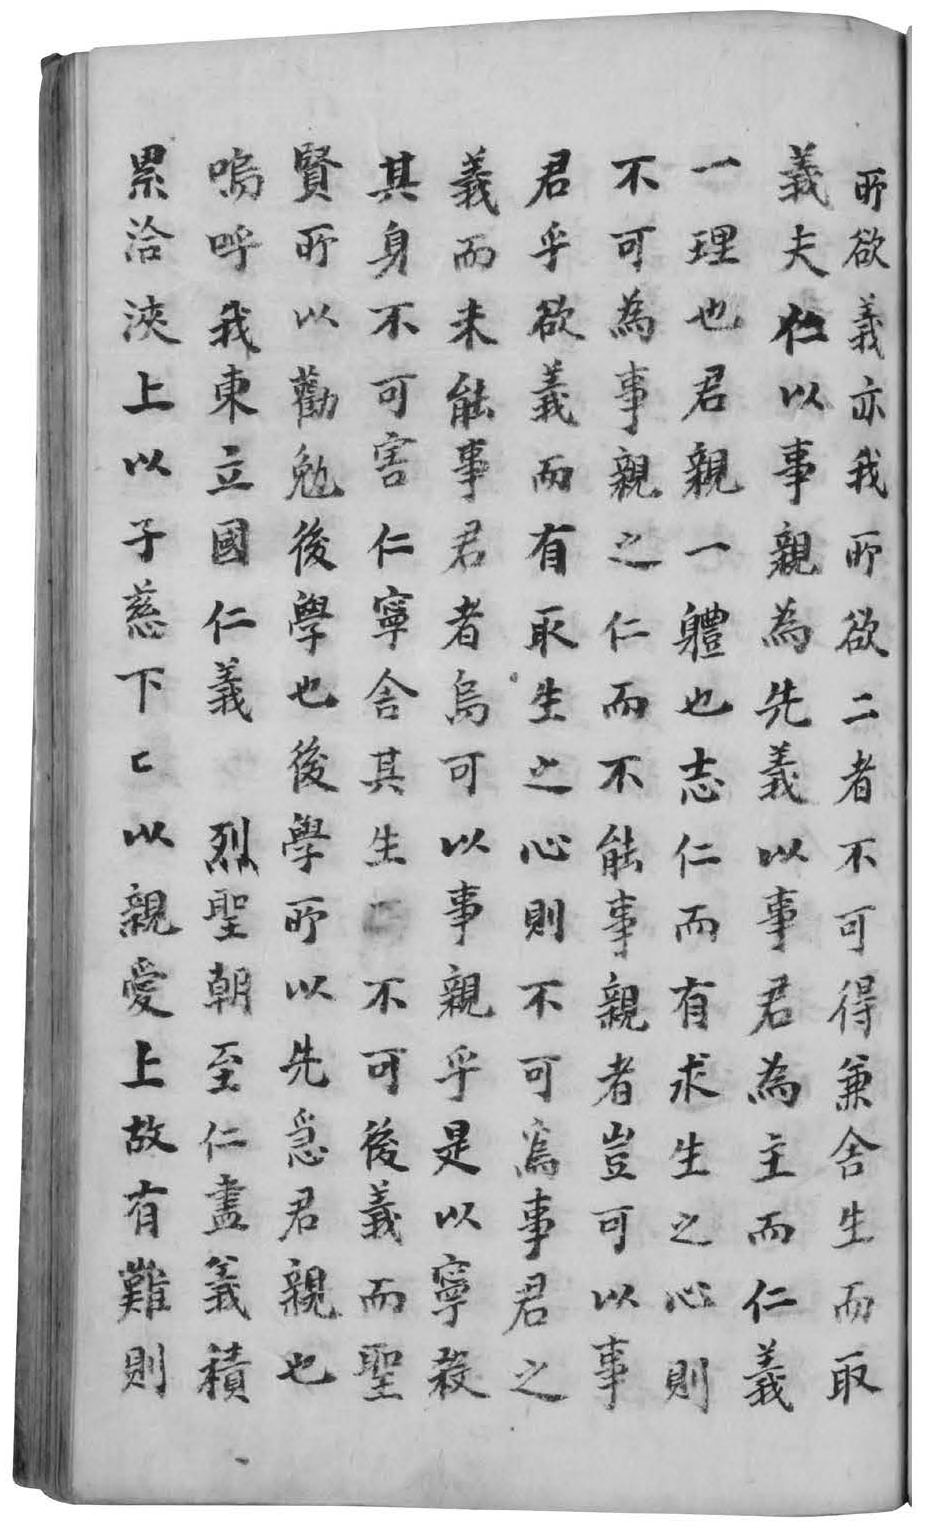 所欲義亦我所欲二者不可得兼舍生而取
義夫仁以事親為先義以事君為主而仁義
一理也君親一軆也志仁而有求生之心則
不可為事親之仁而不能事親者豈可以事
君乎欲義而有取生之心則不可為事君之
義而未能事君者烏可以事親乎是以寧殺
其身不可害仁寧舍其生不可後義而聖
賢所以勸勉後學也後學所以先急君親也
嗚呼我東立國仁義 烈聖朝至仁盡義積
累洽浹上以子慈下匕以親愛上故有難則